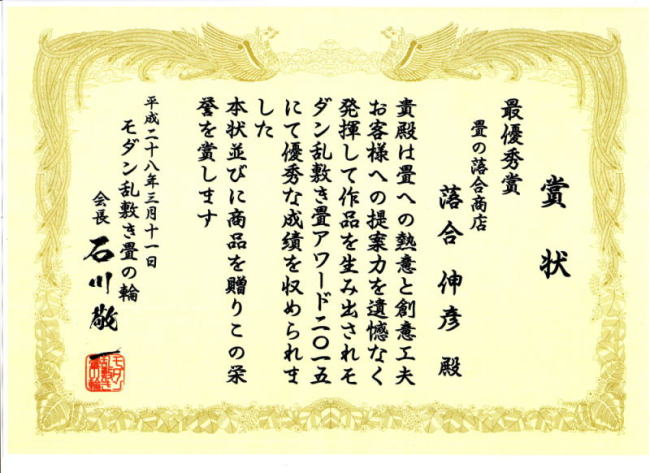 賞状
最優秀賞
畳の落合商店
落合伸彦 殿
貴殿は畳への熱意と創意工夫
お客様への提案力を遺憾なく
発揮して作品を生み出されモ
ダン乱敷き畳アワード二〇一五
にて優秀な成績を収められま
した
本状並びに商品を贈りこの栄
誉を賞します
平成二十八年三月十一日
モダン乱敷き畳の輪
会長 石川敬一
モダン
乱敷き
畳の輪